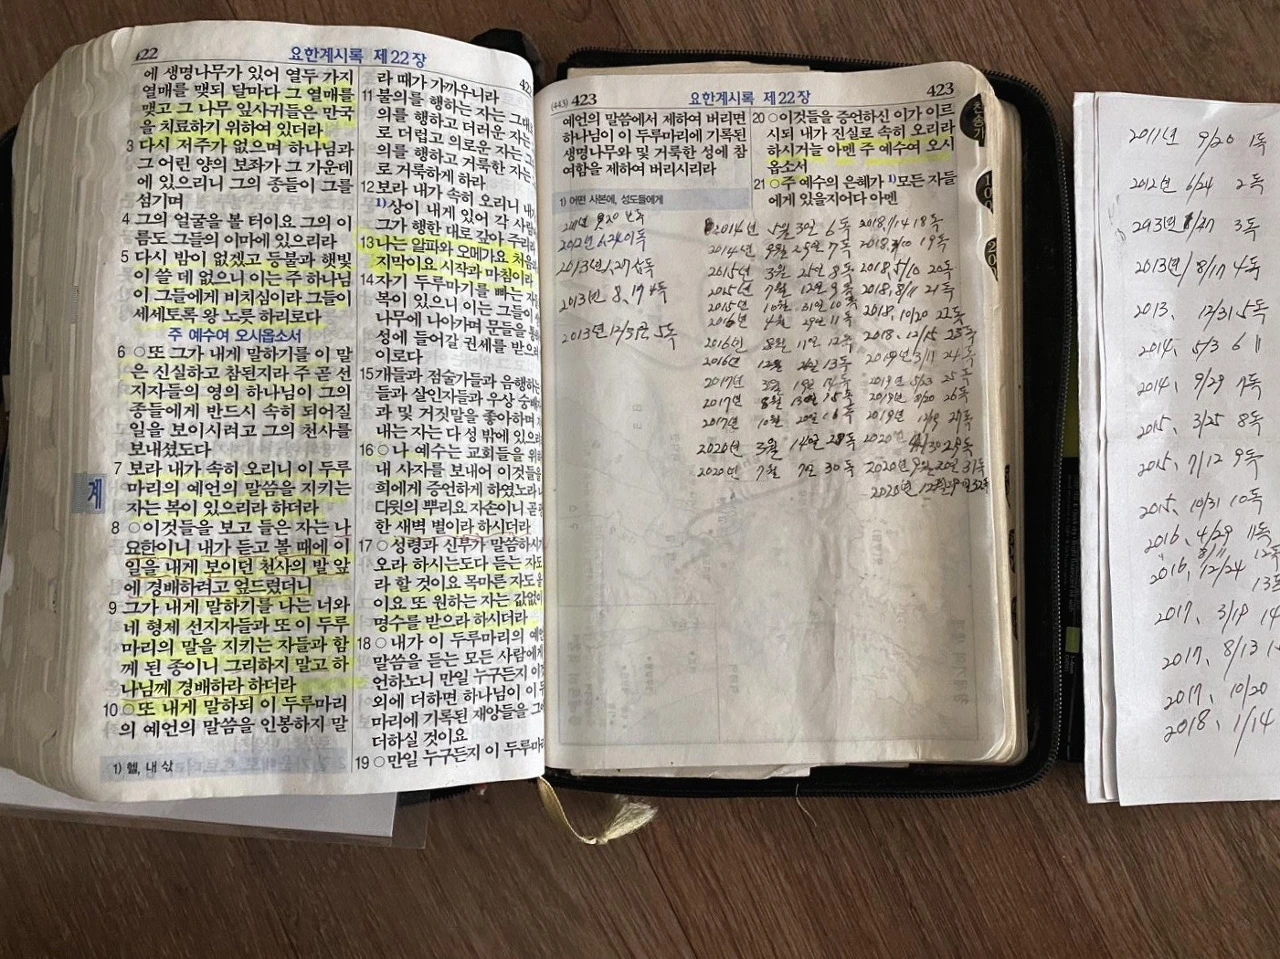 422
요한계시록 제22장
에 생명나무가 있어 열두 가지
열매를 맺되 달마다 그 열매를
맺고 그 나무 잎사귀들은 만국
을 치료하기 위하여 있더라
3 다시 저주가 없으며 하나님과
그 어린 양의 보좌가 그 가운데
에 있으리니 그의 종들이 그를
섬기며
4 그의 얼굴을 볼 터이요 그의 이
름도 그들의 이마에 있으리라
5 다시 밤이 없겠고 등불과 햇빛
이 쓸 데 없으니 이는 주 하나님
이 그들에게 비치심이라 그들이
세세토록 왕 노릇 하리로다
주 예수여 오시옵소서
6 ○또 그가 내게 말하기를 이 말
은 신실하고 참된지라 주 곧 선
지자들의 영의 하나님이 그의
종들에게 반드시 속히 되어질
일을 보이시려고 그의 천사를
보내셨도다
7 보라 내가 속히 오리니 이 두루
마리의 예언의 말씀을 지키는
자는 복이 있으리라 하더라
8 ○이것들을 보고 들은 자는 나
요한이니 내가 듣고 볼 때에 이
일을 내게 보이던 천사의 발 앞
에 경배하려고 엎드렸더니
9 그가 내게 말하기를 나는 너와
네 형제 선지자들과 또 이 두루
마리의 말을 지키는 자들과 함
께 된 종이니 그리하지 말고 하
나님께 경배하라 하더라
10 ○또 내게 말하되 이 두루마리
의 예언의 말씀을 인봉하지 말
1) 헬, 내 삯
계
라 때가 가까우니라
11 불의를 행하는 자는
의를 행하고 더러운 자는
로 더럽고 의로운 자는
의를 행하고 거룩한 자는
로 거룩하게 하라
12 보라 내가 속히 오리니
1)상이 내게 있어 각
그가 행한 대로 갚아 주리라
13 나는 알파와 오메가요
지막이요 시작과 마침이라
14 자기 두루마기를 빠는
복이 있으니 이는 그들이
나무에 나아가며 문들을
성에 들어갈 권세를
이로다
15 개들과 점술가들과
들과 살인자들과 우상
과 및 거짓말을 좋아하며
내는 자는 다 성 밖에
16 ○나 예수는 교회들을
내 사자를 보내어 이것들을
희에게 증언하게 하였노라
다윗의 뿌리요 자손이니
한 새벽 별이라 하시더라
17 ○성령과 신부가 말씀하시기
오라 하시는도다 듣는
라 할 것이요 목마른 자도
이요 또 원하는 자는 값없이
명수를 받으라 하시더라
18 ○내가 이 두루마리의
말씀을 듣는 모든 사람에게
언하노니 만일 누구든지
외에 더하면 하나님이 이
마리에 기록된 재앙들을
더하실 것이요
19 ○만일 누구든지 이
(443) 423
요한계시록 제22장
423
예언의 말씀에서 제하여 버리면
하나님이 이 두루마리에 기록된
생명나무와 및 거룩한 성에 참
여함을 제하여 버리시리라
1) 어떤 사본에, 성도들에게
20 ○이것들을 증언하신 이가 이르
시되 내가 진실로 속히 오리라
하시거늘 아멘 주 예수여 오시
옵소서
21 ○주 예수의 은혜가 1)모든 자들
에게 있을지어다 아멘
찬송가
2013년 8, 17 4독
2013년 12/31 5독
2014년 5월 3일 6독
2014년 9월 29일 7독
2015년 3월 25일 8독
2015년 7월 12일 9독
2015년 10월 31일 10독
2016년 4월 29일 11독
2016년 8월 11일 12독
2016년 12월 24일 13독
2017년 3월 19일 14독
2017년 8월 13일 15독
2017년 10월 20일 16독
2020년 3월 14일 28독
2020년 7월 7일 30독
2018, 1/14 18독
2018, 3/10 19독
2018, 5/10 20독
2018, 8/11 21독
2018, 10/20 22독
2018, 12/15 23독
2019년 3/11 24독
2019년 25독
2019년 8/20 26독
2019년 27독
2020년 29독
2020년 9월 20일 31독
2020년 12월 32독
2011년 9/20 1독
2012년 6/24 2독
2013년 1/27 3독
2013년 8/17 4독
2013, 12/31 5독
2014, 5/3 6 〃
2014, 9/29 7독
2015, 3/25 8독
2015, 7/12 9독
2015, 10/31 10독
2016, 4/29 11독
8/11 12독
2016, 12/24
13독
2017, 3/19 14
2017, 8/13
2017, 10/20
2018, 1/14